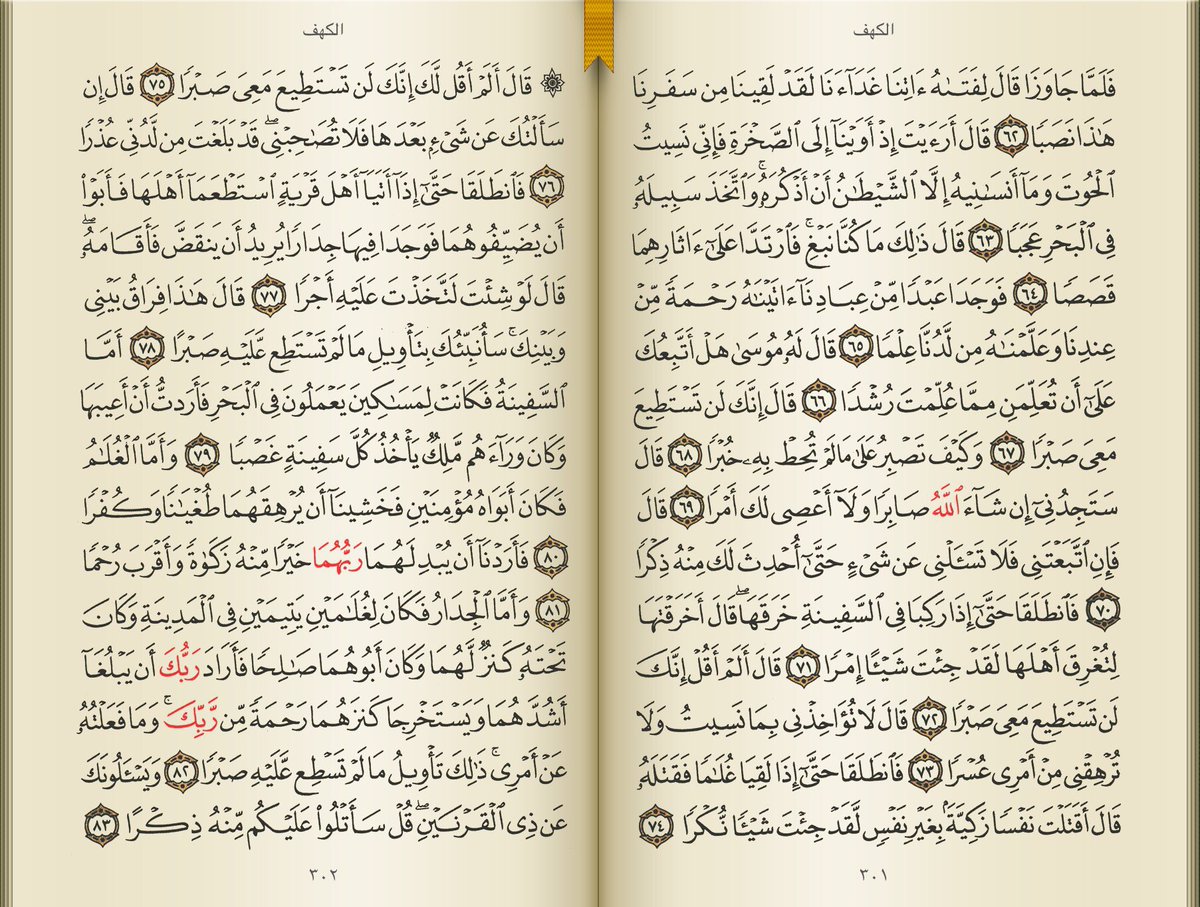 الكهف
فَلَمَّا جَاوَزَا قَالَ لِفَتَىٰهُ ءَاتِنَا غَدَآءَنَا لَقَدْ لَقِينَا مِن سَفَرِنَا
هَٰذَا نَصَبًا ٦٢ قَالَ أَرَءَيْتَ إِذْ أَوَيْنَآ إِلَى ٱلصَّخْرَةِ فَإِنِّى نَسِيتُ
ٱلْحُوتَ وَمَآ أَنسَىٰنِيهُ إِلَّا ٱلشَّيْطَٰنُ أَنْ أَذْكُرَهُۥ ۚ وَٱتَّخَذَ سَبِيلَهُۥ
فِى ٱلْبَحْرِ عَجَبًا ٦٣ قَالَ ذَٰلِكَ مَا كُنَّا نَبْغِ ۚ فَٱرْتَدَّا عَلَىٰٓ ءَاثَارِهِمَا
قَصَصًا ٦٤ فَوَجَدَا عَبْدًا مِّنْ عِبَادِنَآ ءَاتَيْنَٰهُ رَحْمَةً مِّنْ
عِندِنَا وَعَلَّمْنَٰهُ مِن لَّدُنَّا عِلْمًا ٦٥ قَالَ لَهُۥ مُوسَىٰ هَلْ أَتَّبِعُكَ
عَلَىٰٓ أَن تُعَلِّمَنِ مِمَّا عُلِّمْتَ رُشْدًا ٦٦ قَالَ إِنَّكَ لَن تَسْتَطِيعَ
مَعِىَ صَبْرًا ٦٧ وَكَيْفَ تَصْبِرُ عَلَىٰ مَا لَمْ تُحِطْ بِهِۦ خُبْرًا ٦٨ قَالَ
سَتَجِدُنِىٓ إِن شَآءَ ٱللَّهُ صَابِرًا وَلَآ أَعْصِى لَكَ أَمْرًا ٦٩ قَالَ
فَإِنِ ٱتَّبَعْتَنِى فَلَا تَسْـَٔلْنِى عَن شَىْءٍ حَتَّىٰٓ أُحْدِثَ لَكَ مِنْهُ ذِكْرًا
٧٠ فَٱنطَلَقَا حَتَّىٰٓ إِذَا رَكِبَا فِى ٱلسَّفِينَةِ خَرَقَهَا ۖ قَالَ أَخَرَقْتَهَا
لِتُغْرِقَ أَهْلَهَا لَقَدْ جِئْتَ شَيْـًٔا إِمْرًا ٧١ قَالَ أَلَمْ أَقُلْ إِنَّكَ
لَن تَسْتَطِيعَ مَعِىَ صَبْرًا ٧٢ قَالَ لَا تُؤَاخِذْنِى بِمَا نَسِيتُ وَلَا
تُرْهِقْنِى مِنْ أَمْرِى عُسْرًا ٧٣ فَٱنطَلَقَا حَتَّىٰٓ إِذَا لَقِيَا غُلَٰمًا فَقَتَلَهُۥ
قَالَ أَقَتَلْتَ نَفْسًا زَكِيَّةًۢ بِغَيْرِ نَفْسٍ لَّقَدْ جِئْتَ شَيْـًٔا نُّكْرًا ٧٤
٣٠١
الكهف
۞ قَالَ أَلَمْ أَقُل لَّكَ إِنَّكَ لَن تَسْتَطِيعَ مَعِىَ صَبْرًا ٧٥ قَالَ إِن
سَأَلْتُكَ عَن شَىْءٍۭ بَعْدَهَا فَلَا تُصَٰحِبْنِى ۖ قَدْ بَلَغْتَ مِن لَّدُنِّى عُذْرًا
٧٦ فَٱنطَلَقَا حَتَّىٰٓ إِذَآ أَتَيَآ أَهْلَ قَرْيَةٍ ٱسْتَطْعَمَآ أَهْلَهَا فَأَبَوْا۟
أَن يُضَيِّفُوهُمَا فَوَجَدَا فِيهَا جِدَارًا يُرِيدُ أَن يَنقَضَّ فَأَقَامَهُۥ ۖ
قَالَ لَوْ شِئْتَ لَتَّخَذْتَ عَلَيْهِ أَجْرًا ٧٧ قَالَ هَٰذَا فِرَاقُ بَيْنِى
وَبَيْنِكَ ۚ سَأُنَبِّئُكَ بِتَأْوِيلِ مَا لَمْ تَسْتَطِع عَّلَيْهِ صَبْرًا ٧٨ أَمَّا
ٱلسَّفِينَةُ فَكَانَتْ لِمَسَٰكِينَ يَعْمَلُونَ فِى ٱلْبَحْرِ فَأَرَدتُّ أَنْ أَعِيبَهَا
وَكَانَ وَرَآءَهُم مَّلِكٌ يَأْخُذُ كُلَّ سَفِينَةٍ غَصْبًا ٧٩ وَأَمَّا ٱلْغُلَٰمُ
فَكَانَ أَبَوَاهُ مُؤْمِنَيْنِ فَخَشِينَآ أَن يُرْهِقَهُمَا طُغْيَٰنًا وَكُفْرًا
٨٠ فَأَرَدْنَآ أَن يُبْدِلَهُمَا رَبُّهُمَا خَيْرًا مِّنْهُ زَكَوٰةً وَأَقْرَبَ رُحْمًا
٨١ وَأَمَّا ٱلْجِدَارُ فَكَانَ لِغُلَٰمَيْنِ يَتِيمَيْنِ فِى ٱلْمَدِينَةِ وَكَانَ
تَحْتَهُۥ كَنزٌ لَّهُمَا وَكَانَ أَبُوهُمَا صَٰلِحًا فَأَرَادَ رَبُّكَ أَن يَبْلُغَآ
أَشُدَّهُمَا وَيَسْتَخْرِجَا كَنزَهُمَا رَحْمَةً مِّن رَّبِّكَ ۚ وَمَا فَعَلْتُهُۥ
عَنْ أَمْرِى ۚ ذَٰلِكَ تَأْوِيلُ مَا لَمْ تَسْطِع عَّلَيْهِ صَبْرًا ٨٢ وَيَسْـَٔلُونَكَ
عَن ذِى ٱلْقَرْنَيْنِ ۖ قُلْ سَأَتْلُوا۟ عَلَيْكُم مِّنْهُ ذِكْرًا ٨٣
٣٠٢